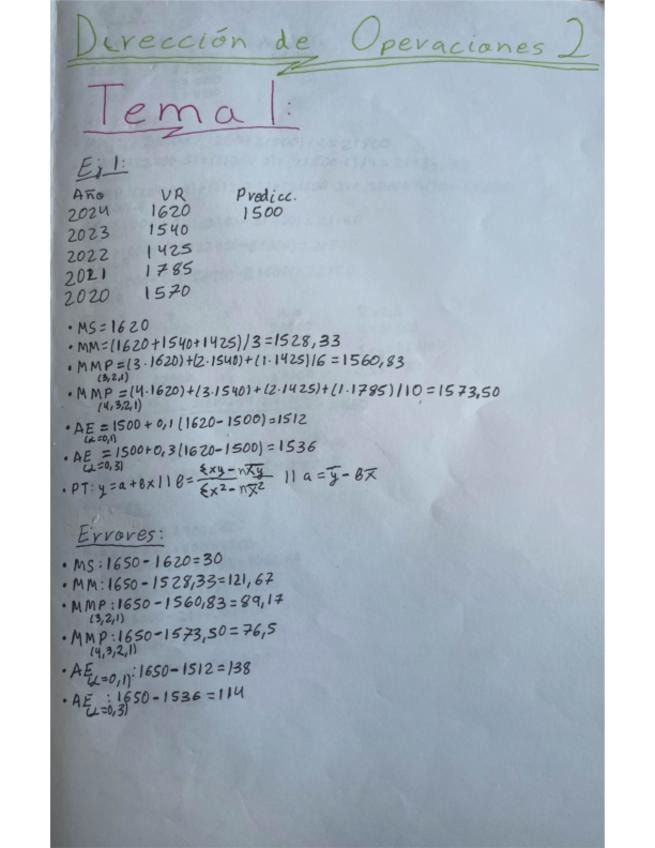 Dirección de Operaciones 2
Tema 1:
Ej 1:
Año VR Predicc.
2024 1620 1500
2023 1540
2022 1425
2021 1785
2020 1570
• MS=1620
• MM=(1620+1540+1425)/3=1528,33
• MMP=(3·1620)+(2·1540)+(1·1425)/6=1560,83
(3,2,1)
• MMP=(4·1620)+(3·1540)+(2·1425)+(1·1785)/10=1573,50
(4,3,2,1)
• AE=1500+0,1(1620-1500)=1512
(α=0,1)
• AE=1500+0,3(1620-1500)=1536
(α=0,3)
• PT: y=a+bx || b=(Σxy-nx̄ȳ)/(Σx²-nx̄²) || a=ȳ-bx̄
Errores:
• MS:1650-1620=30
• MM:1650-1528,33=121,67
• MMP:1650-1560,83=89,17
(3,2,1)
• MMP:1650-1573,50=76,5
(4,3,2,1)
• AE(α=0,1):1650-1512=138
• AE(α=0,3):1650-1536=114